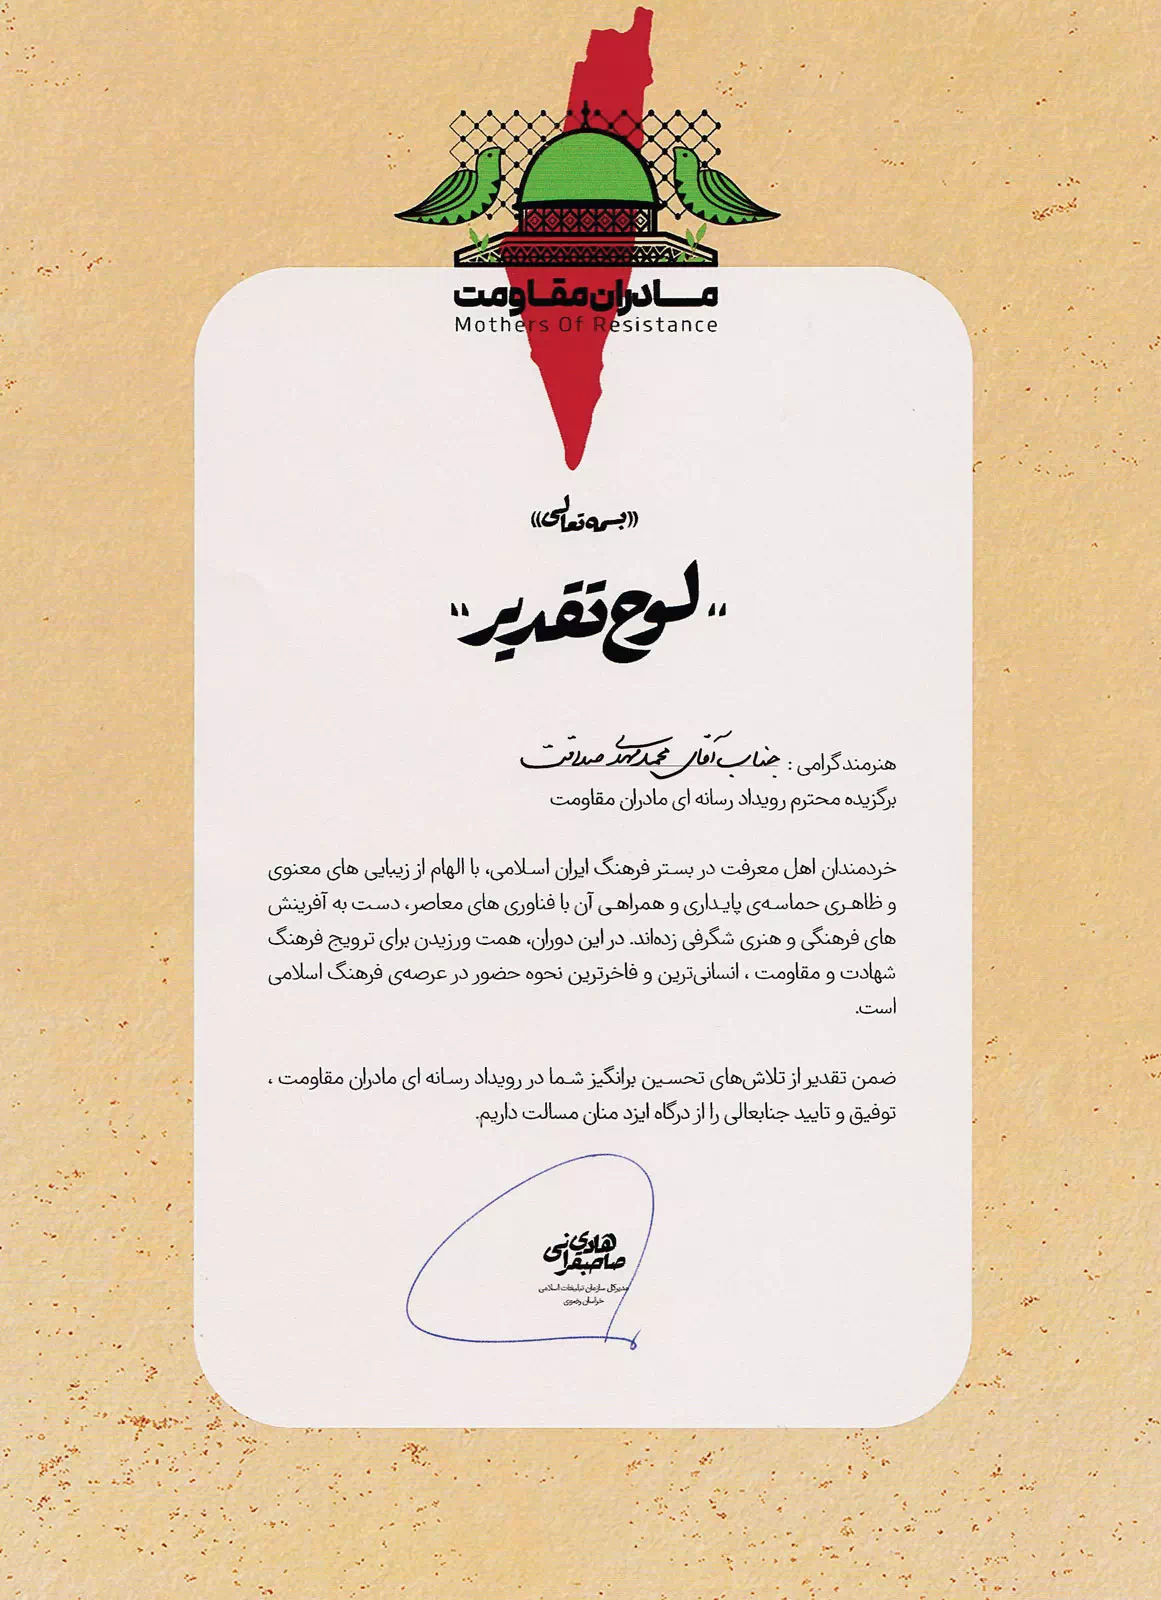 مادران مقاومت
Mothers Of Resistance
((بسمه تعالی))
"لوح تقدیر"
هنرمند گرامی : جناب آقای محمدمهدی صداقت
برگزیده محترم رویداد رسانه ای مادران مقاومت
خردمندان اهل معرفت در بستر فرهنگ ایران اسلامی، با الهام از زیبایی های معنوی
و ظاهری حماسه‌ی پایداری و همراهی آن با فناوری های معاصر، دست به آفرینش
های فرهنگی و هنری شگرفی زده‌اند. در این دوران، همت ورزیدن برای ترویج فرهنگ
شهادت و مقاومت ، انسانی‌ترین و فاخرترین نحوه حضور در عرصه‌ی فرهنگ اسلامی
است.
ضمن تقدیر از تلاش‌های تحسین برانگیز شما در رویداد رسانه ای مادران مقاومت ،
توفیق و تایید جنابعالی را از درگاه ایزد منان مسالت داریم.
هادی
صاحبقرانی
مدیرکل سازمان تبلیغات اسلامی
خراسان رضوی